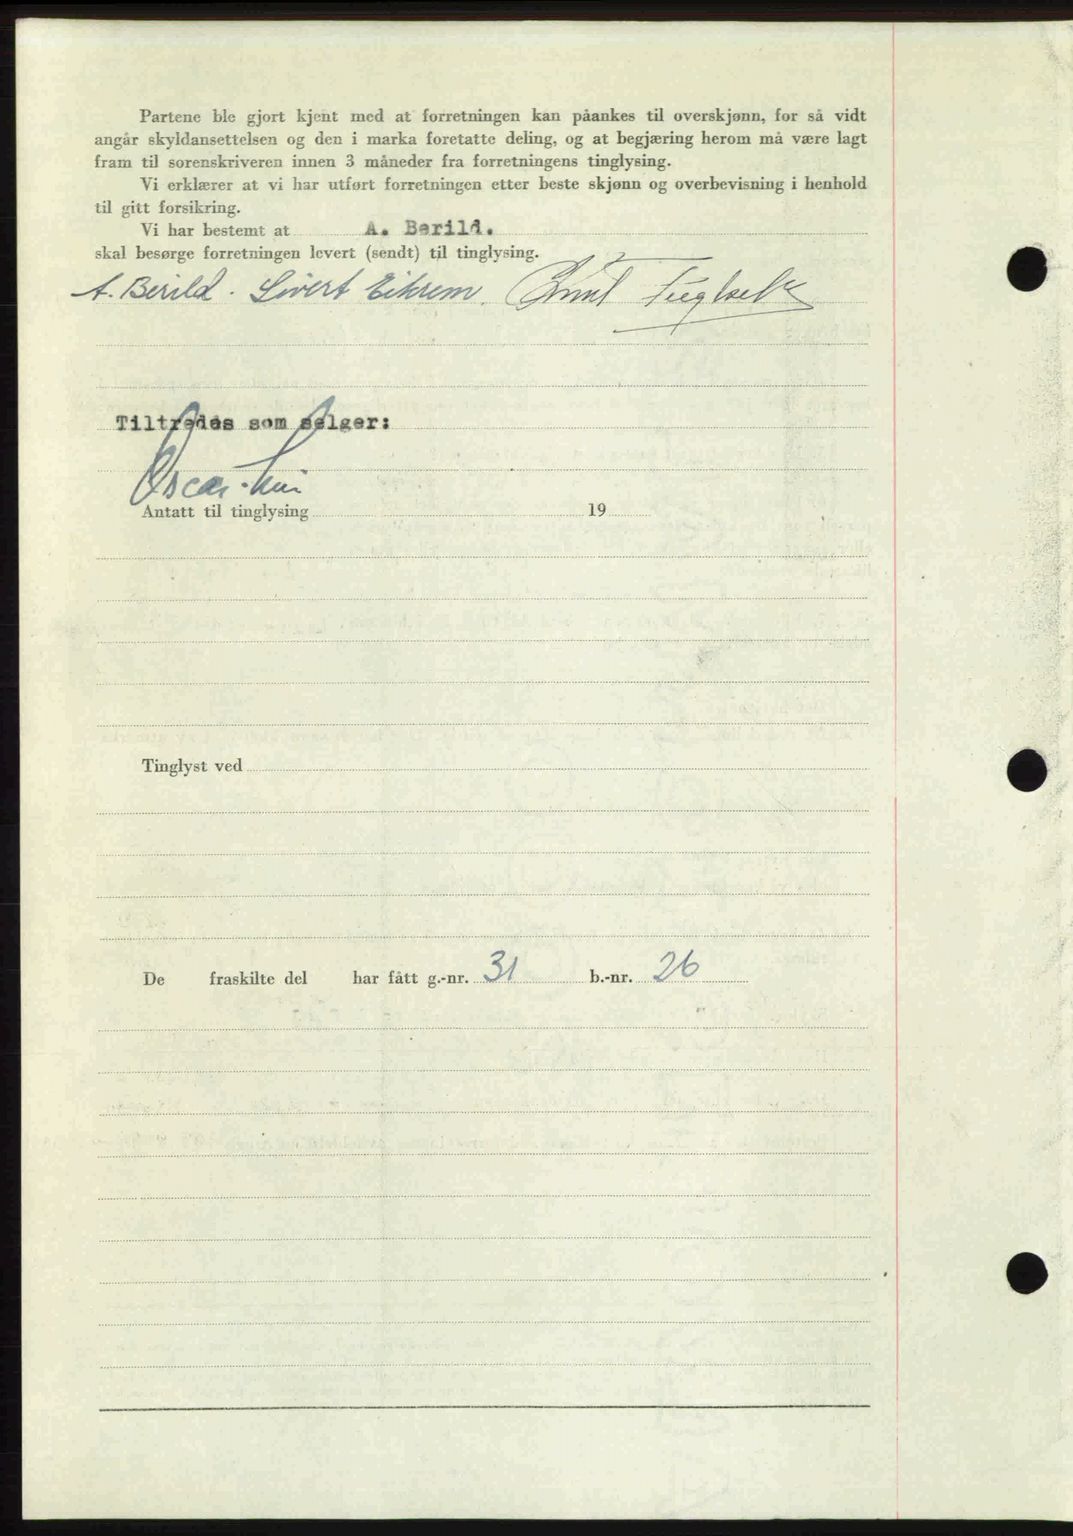 Partene ble gjort kjent med at forretningen kan påankes til overskjønn, for så vidt
angår skyldansettelsen og den i marka foretatte deling, og at begjæring herom må være lagt
fram til sorenskriveren innen 3 måneder fra forretningens tinglysing.
Vi erklærer at vi har utført forretningen etter beste skjønn og overbevisning i henhold
til gitt forsikring.
Vi har bestemt at A. Berild.
skal besørge forretningen levert (sendt) til tinglysing.
A. Berild. Sivert Eikrem. Knut
Tiltredes som selger:
Oscar
Antatt til tinglysing 19
Tinglyst ved
De fraskilte del har fått g.-nr. 31 b.-nr. 26